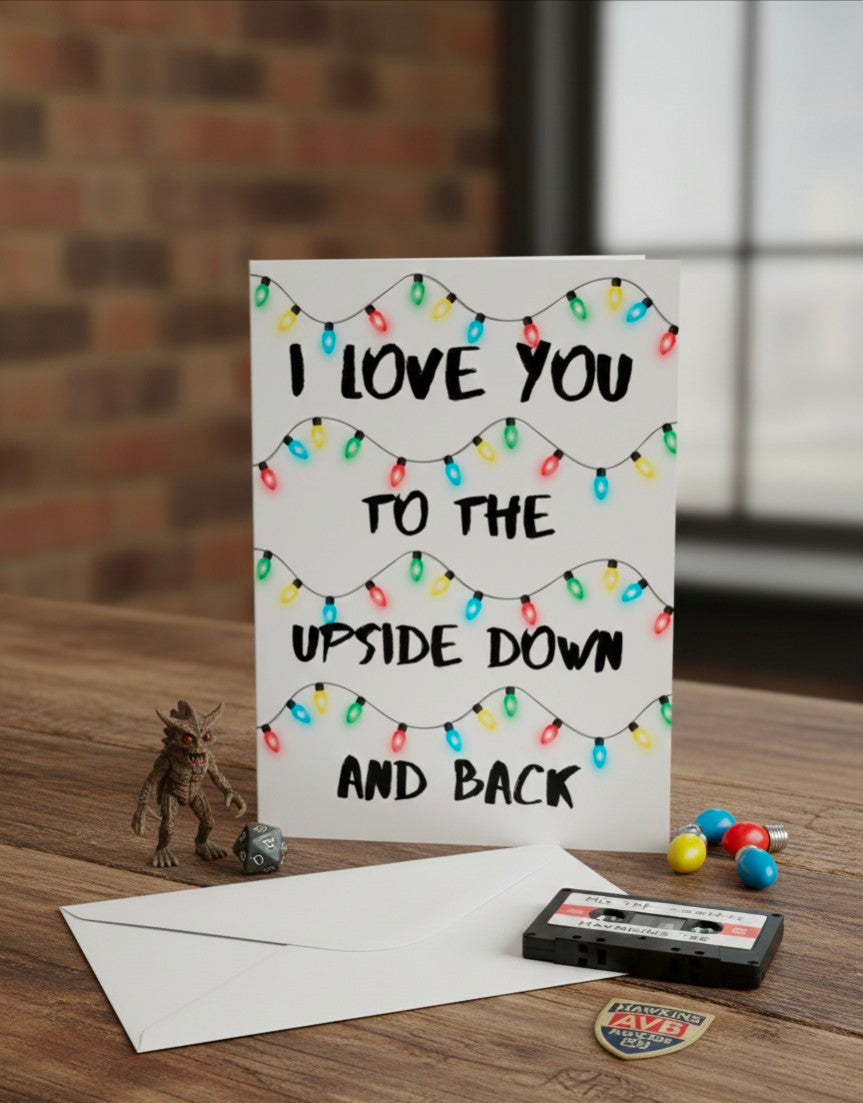 I LOVE YOU
TO THE
UPSIDE DOWN
AND BACK
HAWKINS
AVB